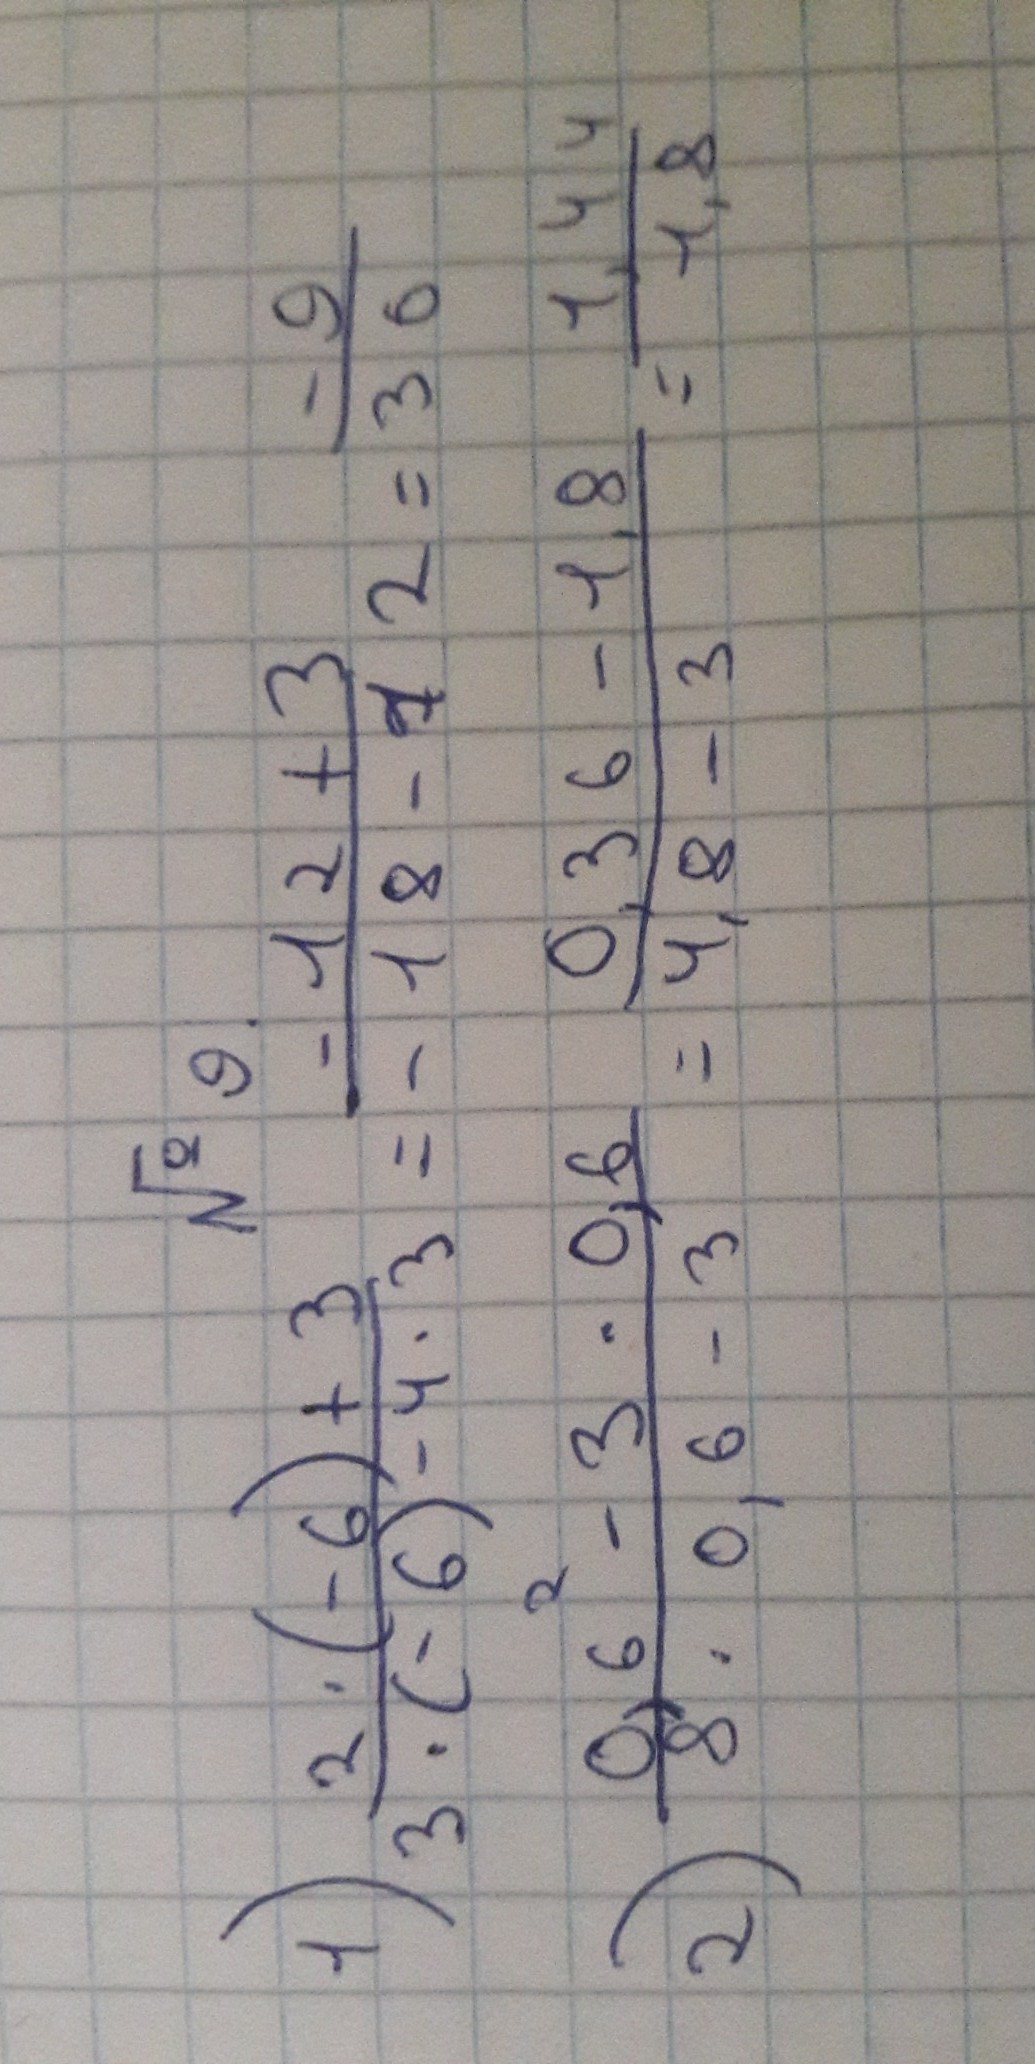 № 9.
1) (2·(-6)+3)/(3·(-6)-4·3) = (-12+3)/(-18-12) = (-9)/(36)
2) (0,6²-3·0,6)/(8·0,6-3) = (0,36-1,8)/(4,8-3) = (1,44)/(1,8)